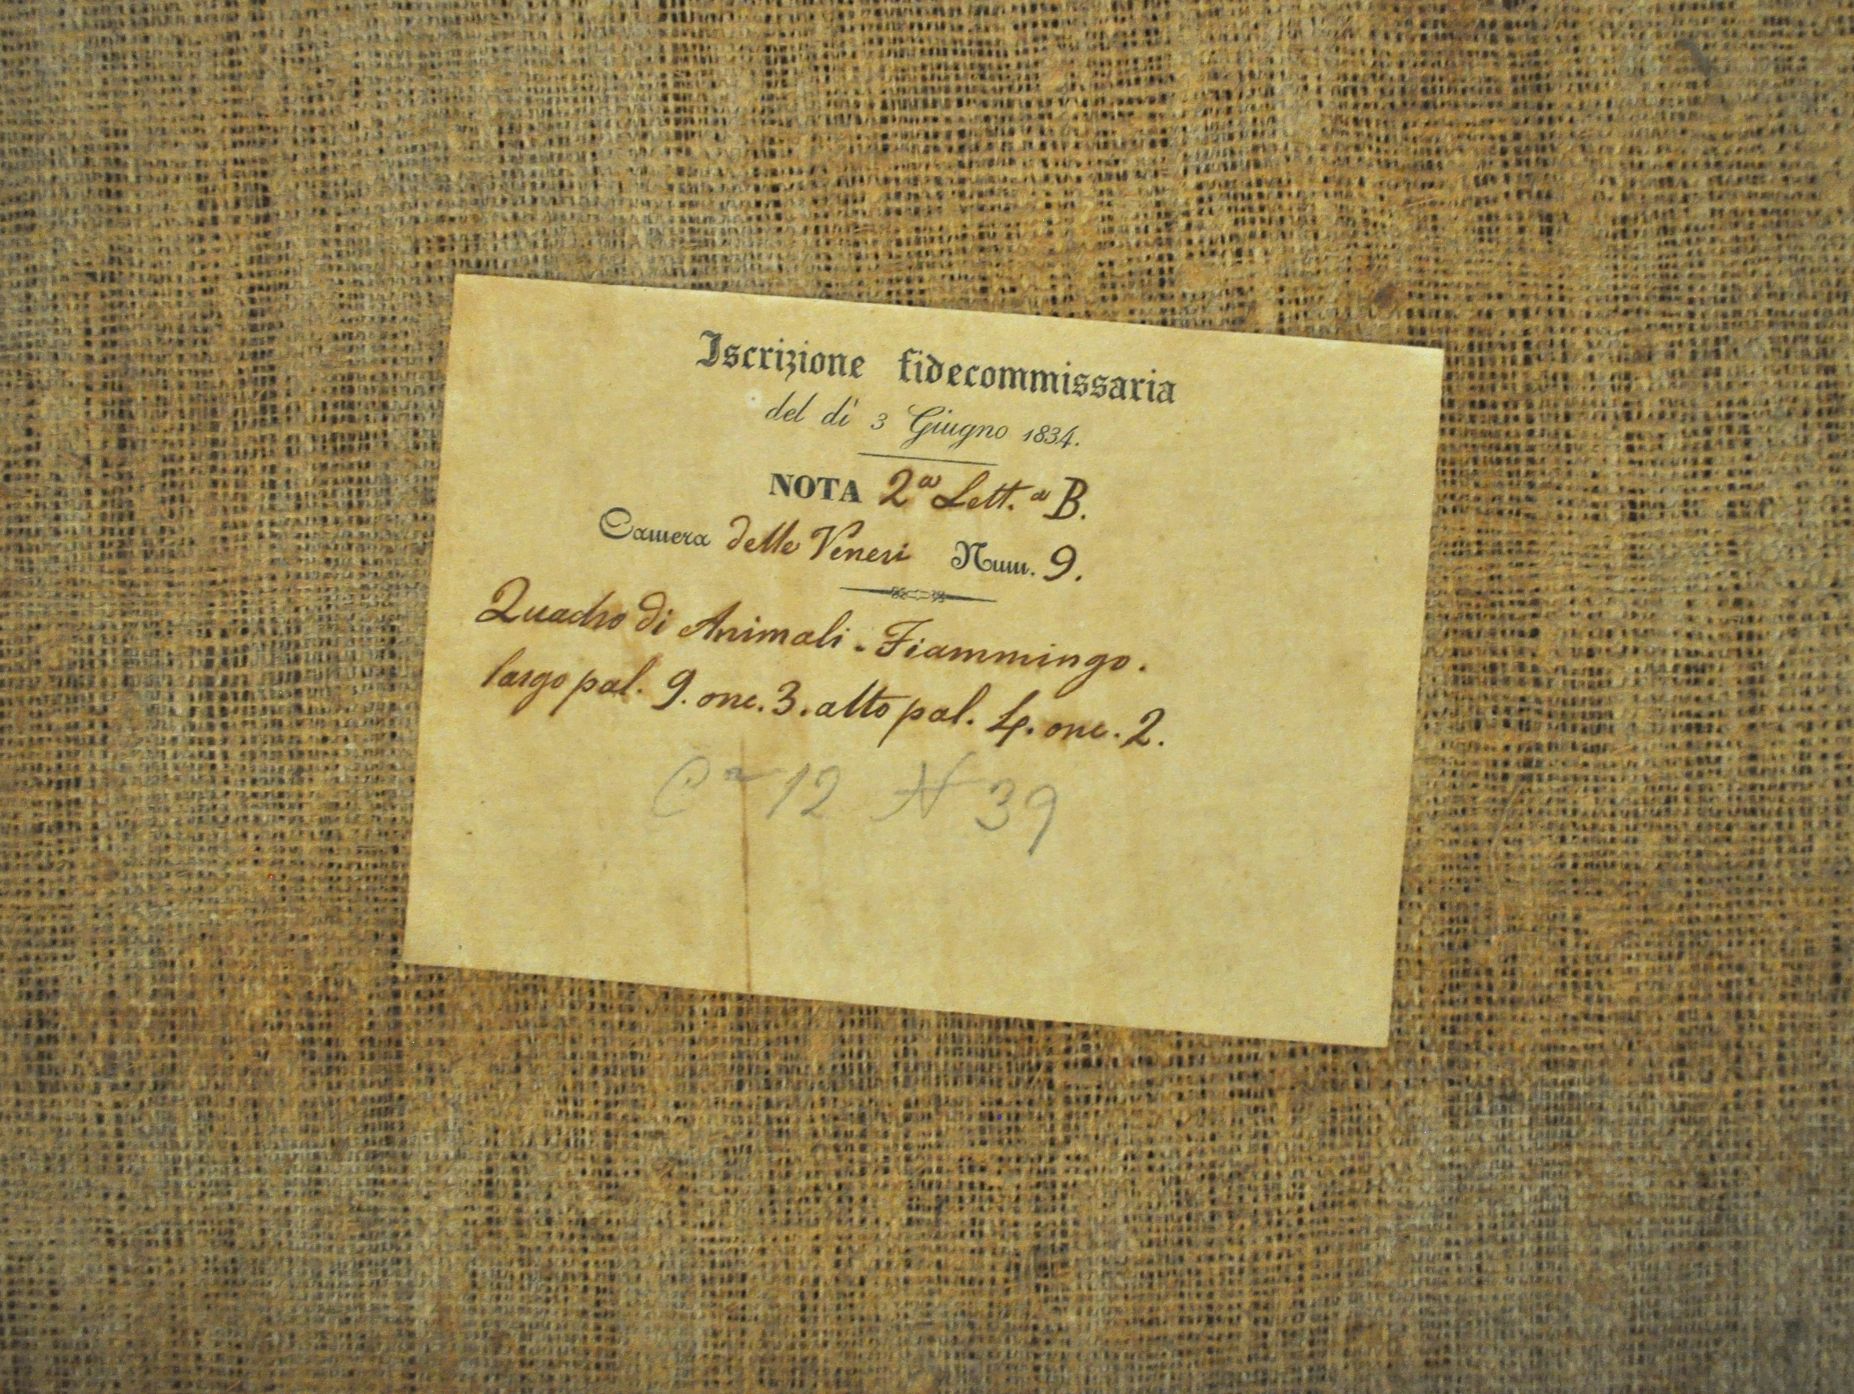 Iscrizione fidecommissaria
del dì 3 Giugno 1834.
NOTA 2ª Lett.ª B.
Camera delle Veneri Num. 9.
Quadro di Animali - Fiammingo.
largo pal. 9. onc. 3. alto pal. 4. onc. 2.
Cª 12 N 39